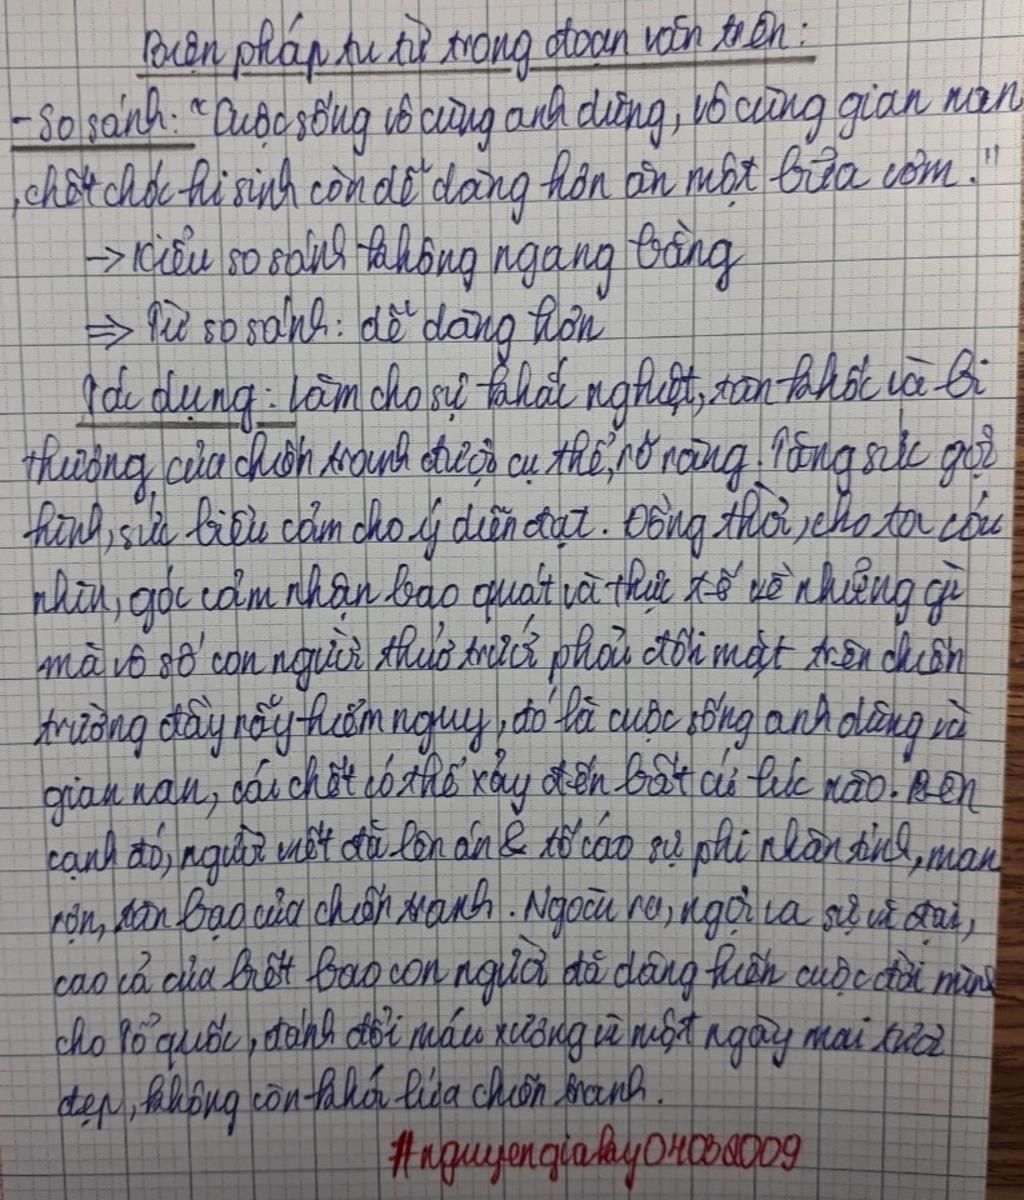 Biện pháp tu từ trong đoạn văn trên:
- So sánh: "Cuộc sống vô cùng anh dũng, vô cùng gian nan
, chết chóc hi sinh còn dễ dàng hơn ăn một bữa cơm."
→ Kiểu so sánh không ngang bằng
⇒ Từ so sánh: dễ dàng hơn
Tác dụng: Làm cho sự khắc nghiệt, tàn khốc và bi
thương của chiến tranh được cụ thể, rõ ràng. Tăng sức gợi
hình, sức biểu cảm cho ý diễn đạt. Đồng thời, cho ta cái
nhìn, góc cảm nhận bao quát và thực tế về những gì
mà vô số con người thuở trước phải đối mặt trên chiến
trường đầy rẫy hiểm nguy, đó là cuộc sống anh dũng và
gian nan, cái chết có thể xảy đến bất cứ lúc nào. Bên
cạnh đó, người viết đã lên án & tố cáo sự phi nhân tính, man
rợn, tàn bạo của chiến tranh. Ngoài ra, ngợi ca sự vĩ đại,
cao cả của biết bao con người đã dâng hiến cuộc đời mình
cho Tổ quốc, đánh đổi máu xương vì một ngày mai tươi
đẹp, không còn khói lửa chiến tranh.